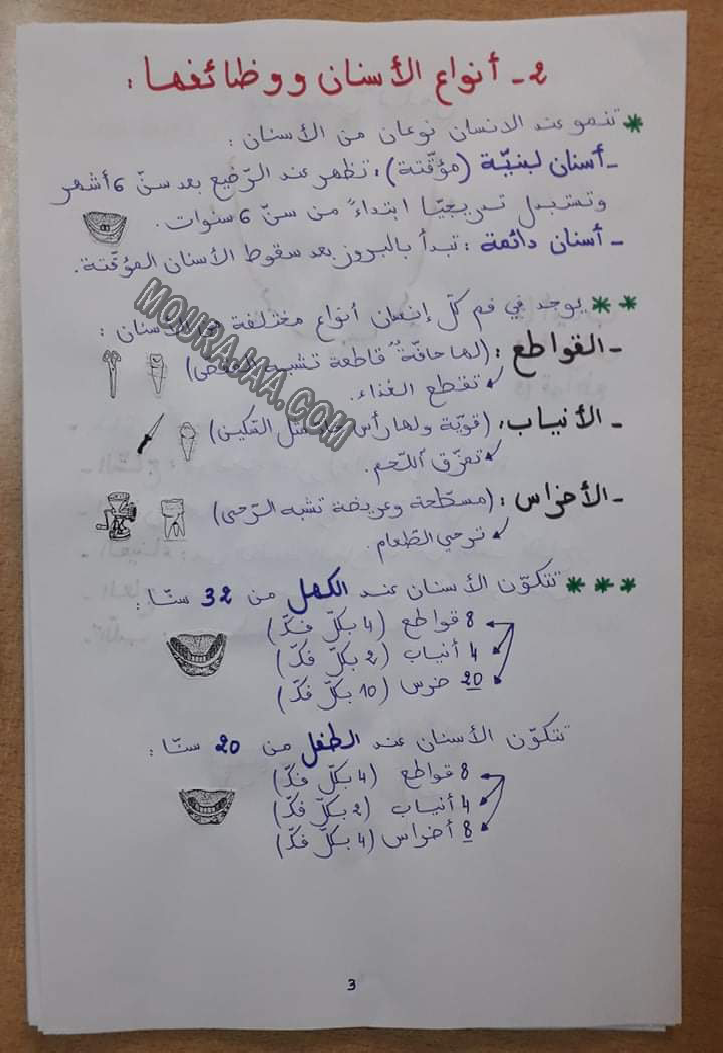 2 - أنواع الأسنان ووظائفها :
* تنمو عند الانسان نوعان من الأسنان :
- أسنان لبنيّة (مؤقّتة) : تظهر عند الرّضيع بعد سنّ 6 أشهر
وتستبدل تدريجيّا ابتداءً من سنّ 6 سنوات.
- أسنان دائمة : تبدأ بالبروز بعد سقوط الأسنان المؤقّتة.
** يوجد في فم كلّ إنسان أنواع مختلفة الأسنان :
- القواطع : (لها حافّة قاطعة تشبه المقص)
تقطع الغذاء.
- الأنياب : (قويّة ولها رأس مثل السّكين)
تمزّق اللّحم.
- الأضراس : (مسطّحة وعريضة تشبه الرّحى)
ترحي الطّعام.
*** تتكوّن الأسنان عند الكهل من 32 سنّا :
8 قواطع (4 بكلّ فكّ)
4 أنياب (2 بكلّ فكّ)
20 ضرس (10 بكلّ فكّ)
تتكوّن الأسنان عند الطفل من 20 سنّا :
8 قواطع (4 بكلّ فكّ)
4 أنياب (2 بكلّ فكّ)
8 أضراس (4 بكلّ فكّ)
3
MOURAJAA.COM